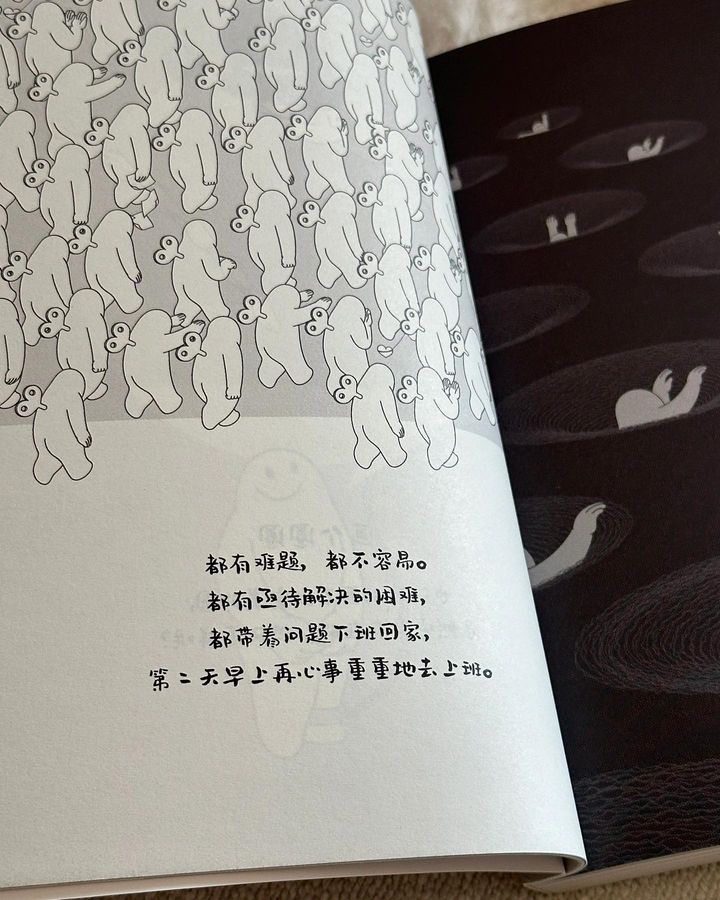 都有难题，都不容易。
都有亟待解决的困难，
都带着问题下班回家，
第二天早上再心事重重地去上班。